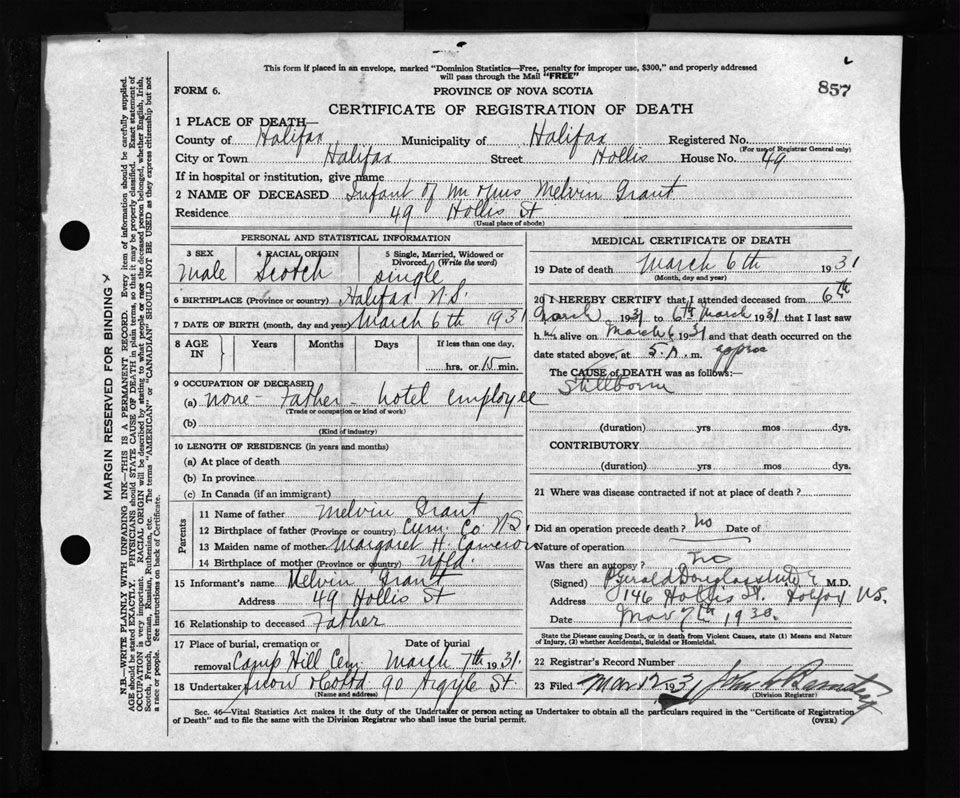 This form if placed in an envelope, marked "Dominion Statistics—Free, penalty for improper use, $300," and properly addressed
will pass through the Mail "FREE"
857
FORM 6.
PROVINCE OF NOVA SCOTIA
CERTIFICATE OF REGISTRATION OF DEATH
1 PLACE OF DEATH—
County of Halifax Municipality of Halifax Registered No.
(For use of Registrar General only)
City or Town Halifax Street Hollis House No. 49
If in hospital or institution, give name
2 NAME OF DECEASED Infant of Mr & Mrs Melvin Grant
Residence 49 Hollis St
(Usual place of abode)
PERSONAL AND STATISTICAL INFORMATION
3 SEX 4 RACIAL ORIGIN 5 Single, Married, Widowed or
Divorced. (Write the word)
Male Scotch single
6 BIRTHPLACE (Province or country) Halifax N.S.
7 DATE OF BIRTH (month, day and year) March 6th 1931
8 AGE IN Years Months Days If less than one day,
hrs. or 15 min.
9 OCCUPATION OF DECEASED
(a) none - Father - hotel employee
(Trade or occupation or kind of work)
(b)
(Kind of industry)
10 LENGTH OF RESIDENCE (in years and months)
(a) At place of death
(b) In province
(c) In Canada (if an immigrant)
Parents
11 Name of father Melvin Grant
12 Birthplace of father (Province or country) Cum. Co. N.S.
13 Maiden name of mother Margaret H. Cameron
14 Birthplace of mother (Province or country) Nfld.
15 Informant's name Melvin Grant
Address 49 Hollis St
16 Relationship to deceased Father
17 Place of burial, cremation or Date of burial
removal Camp Hill Cem. March 7th 1931.
18 Undertaker Snow & Co Ltd 90 Argyle St
(Name and address)
MEDICAL CERTIFICATE OF DEATH
19 Date of death March 6th 1931
(Month, day and year)
20 I HEREBY CERTIFY that I attended deceased from 6th
March 1931 to 6th March 1931 that I last saw
him alive on March 6 1931 and that death occurred on the
date stated above, at 5 A. m. approx
The CAUSE of DEATH was as follows:—
Stillborn
(duration) yrs mos dys.
CONTRIBUTORY
(duration) yrs mos dys.
21 Where was disease contracted if not at place of death?
Did an operation precede death? No Date of
Nature of operation
Was there an autopsy? No
(Signed) M.D.
Address 146 Hollis St. Halifax N.S.
Date Mar 7th 1930.
State the Disease causing Death, or in death from Violent Causes, state (1) Means and Nature
of Injury, (2) whether Accidental, Suicidal or Homicidal.
22 Registrar's Record Number
23 Filed Mar 12 1931 John
(Division Registrar)
Sec. 46—Vital Statistics Act makes it the duty of the Undertaker or person acting as Undertaker to obtain all the particulars required in the "Certificate of Registration
of Death" and to file the same with the Division Registrar who shall issue the burial permit. (OVER)
MARGIN RESERVED FOR BINDING
N.B.—WRITE PLAINLY WITH UNFADING INK—THIS IS A PERMANENT RECORD. Every item of information should be carefully supplied.
AGE should be stated EXACTLY. PHYSICIANS should STATE CAUSE OF DEATH in plain terms, so that it may be properly classified. Exact statement of
OCCUPATION is very important. RACIAL ORIGIN will be described by stating to what people or race the deceased person belonged, whether English, Irish,
Scotch, French, German, Russian, Ruthenian, etc. The terms "AMERICAN" or "CANADIAN" SHOULD NOT BE USED as they express citizenship but not
a race or people. See instructions on back of Certificate.